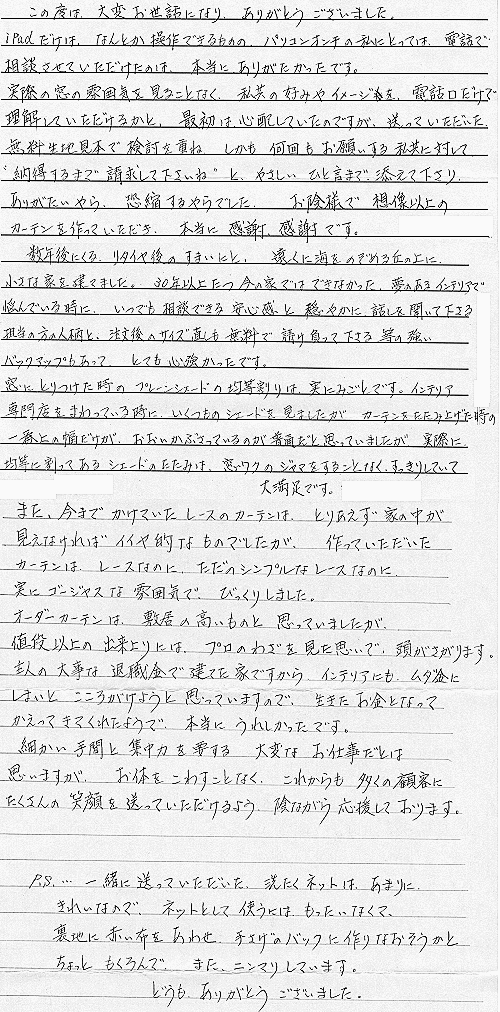 この度は、大変お世話になり、ありがとうございました。
iPadだけは、なんとか操作できるものの、パソコンオンチの私にとっては、電話で
相談させていただけたのは、本当にありがたかったです。
実際の窓の雰囲気を見ることなく、私共の好みやイメージを、電話口だけで
理解していただけるかと、最初は心配していたのですが、送っていただいた
無料生地見本で検討を重ね、しかも何回もお願いする私共に対して
"納得するまで請求して下さいね"と、やさしいひと言まで添えて下さり、
ありがたいやら、恐縮するやらでした。お陰様で想像以上の
カーテンを作っていただき、本当に感謝、感謝です。
数年後にくる、リタイヤ後のすまいにと、遠くに海をのぞめる丘の上に、
小さな家を建てました。30年以上たつ今の家ではできなかった、夢のあるインテリアで
悩んでいる時に、いつでも相談できる安心感と穏やかに話しを聞いて下さる
担当の方の人柄と、注文後のサイズ直しも無料で請け負って下さる等の強い
バックアップもあって、とても心強かったです。
窓にとりつけた時のプレーンシェードの均等割りは、実にみごとです。インテリア
専門店をまわっている時に、いくつものシェードを見ましたが、カーテンをたたみ上げた時の
一番上の幅だけが、おおいかぶさっているのが普通だと思っていましたが、実際に
均等に割ってあるシェードのたたみは、窓ワクのジャマをすることなく、すっきりしていて
大満足です。
また、今までかけていたレースのカーテンは、とりあえず家の中が
見えなければイイヤ的なものでしたが、作っていただいた
カーテンは、レースなのに、ただのシンプルなレースなのに、
実にゴージャスな雰囲気で、びっくりしました。
オーダーカーテンは、敷居の高いものと思っていましたが、
値段以上の出来上りには、プロのわざを見た思いで、頭がさがります。
主人の大事な退職金で建てた家ですから、インテリアにも、ムダ金に
しまいとこころがけようと思っていますので、生きたお金となって
かえってきてくれたようで、本当にうれしかったです。
細かい手間と集中力を要する大変なお仕事だとは
思いますが、お体をこわすことなく、これからも多くの顧客に
たくさんの笑顔を送っていただけるよう、陰ながら応援しております。
P.S.… 一緒に送っていただいた、洗たくネットは、あまりに、
きれいなので、ネットとして使うには、もったいなくて、
裏地に赤い布をあわせ、手さげのバックに作りなおそうかと
ちょっともくろんで、また、ニンマリしています。
どうも、ありがとうございました。